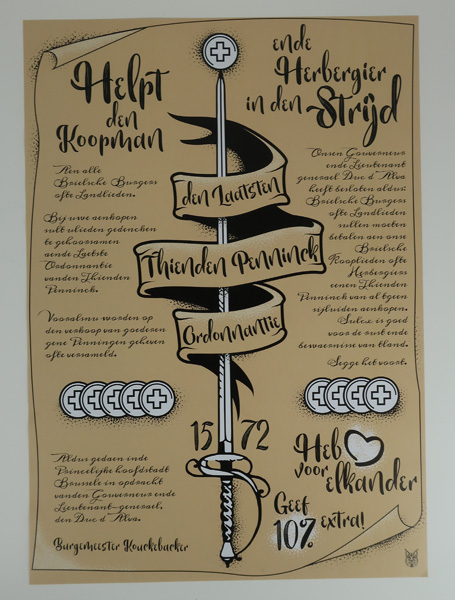 Helpt
den
Koopman
ende
Herbergier
in den
Strijd
Aen alle
Brielsche Burgers
ofte Landlieden.
Bij uwe aenkopen
sult ulieden gedencken
te gehoorsamen
aende Laetste
Ordonnantie
vanden Thienden
Penninck.
Vooralnu worden op
den verkoop van goederen
gene Penningen geheven
ofte versameld.
den Laatsten
Thienden Penninck
Ordonnantie
Onsen Gouverneur
ende Lieutenant
generael Duc d'Alva
heeft besloten aldus:
Brielsche Burgers
ofte Landlieden
sullen moeten
betalen aen onse
Brielsche
Kooplieden ofte
Herbergiers
eenen Thienden
Penninck van al tgeen
sijluiden aenkopen.
Sulcx is goed
voor de rust ende
bewaernisse van tland.
Segge het voort.
15 72
Aldus gedaen inde
Princelijke hoofdstadt
Brussele in opdracht
vanden Gouverneur ende
Lieutenant-generael,
den Duc d'Alva.
Burgemeester Kouckebacker
Heb
voor
elkander
Geef
10% extra!